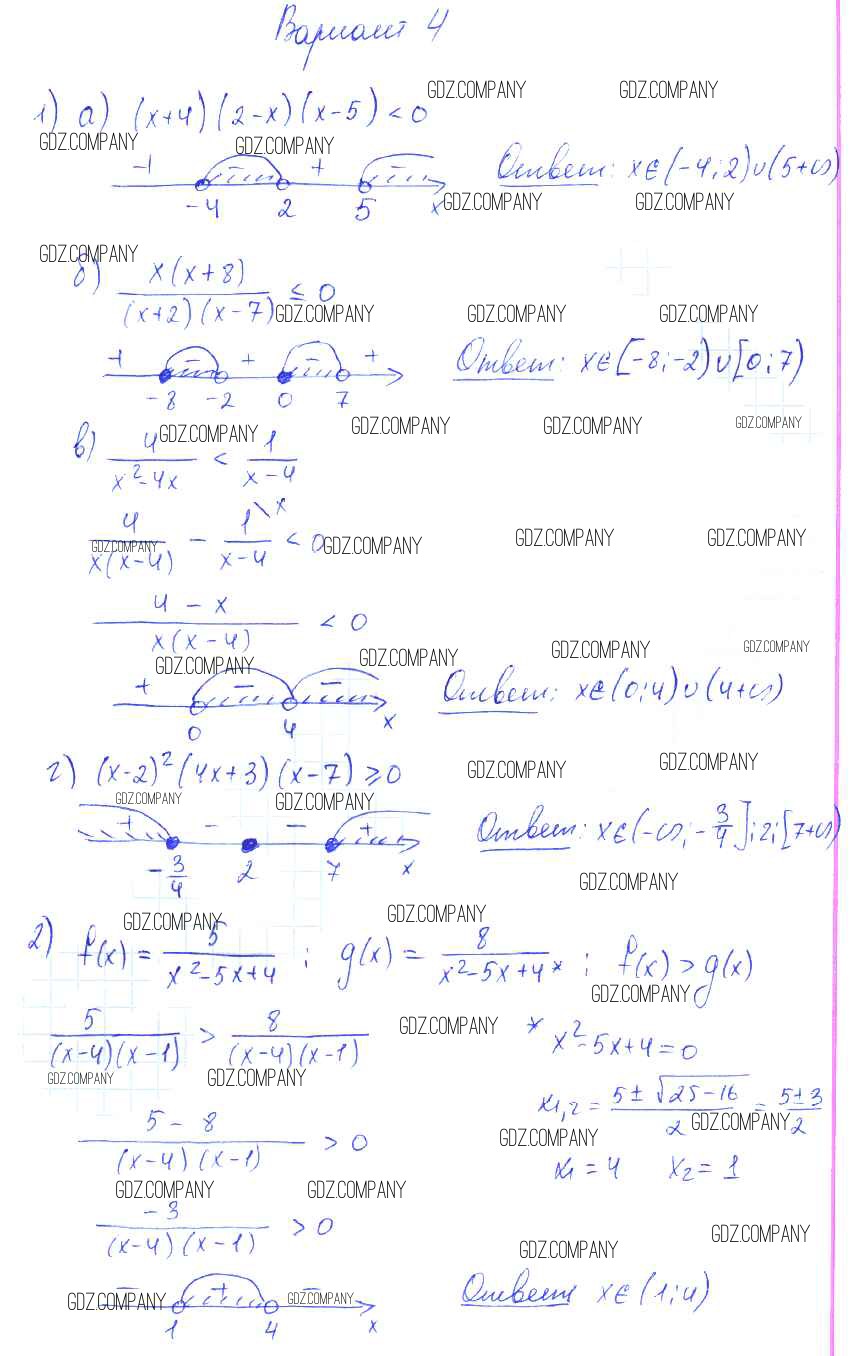 Вариант 4
1) а) (x+4)(2-x)(x-5) < 0
GDZ.COMPANY GDZ.COMPANY
GDZ.COMPANY GDZ.COMPANY
+ - + -
-4 2 5 x
Ответ: x∈(-4;2)∪(5+∞)
GDZ.COMPANY GDZ.COMPANY
GDZ.COMPANY
б) x(x+8) / (x+2)(x-7) ≤ 0
GDZ.COMPANY GDZ.COMPANY GDZ.COMPANY
+ - + - +
-8 -2 0 7
Ответ: x∈[-8;-2)∪[0;7)
GDZ.COMPANY GDZ.COMPANY GDZ.COMPANY GDZ.COMPANY
в) 4 / x²-4x < 1 / x-4
4 / x(x-4) - 1\x / x-4 < 0
GDZ.COMPANY GDZ.COMPANY GDZ.COMPANY GDZ.COMPANY
4 - x / x(x-4) < 0
GDZ.COMPANY GDZ.COMPANY GDZ.COMPANY GDZ.COMPANY
+ - -
0 4 x
Ответ: x∈(0;4)∪(4+∞)
г) (x-2)²(4x+3)(x-7) ≥ 0
GDZ.COMPANY GDZ.COMPANY
GDZ.COMPANY GDZ.COMPANY
+ - - +
-3/4 2 7 x
Ответ: x∈(-∞;-3/4];2;[7+∞)
GDZ.COMPANY
GDZ.COMPANY GDZ.COMPANY
2) f(x) = 5 / x²-5x+4 ; g(x) = 8 / x²-5x+4 * ; f(x) > g(x)
GDZ.COMPANY
5 / (x-4)(x-1) > 8 / (x-4)(x-1)
GDZ.COMPANY
* x²-5x+4=0
GDZ.COMPANY GDZ.COMPANY
x1,2 = 5±√25-16 / 2 = 5±3 / 2
GDZ.COMPANY
5 - 8 / (x-4)(x-1) > 0
GDZ.COMPANY
x1 = 4 x2 = 1
GDZ.COMPANY GDZ.COMPANY
-3 / (x-4)(x-1) > 0
GDZ.COMPANY GDZ.COMPANY
- + -
GDZ.COMPANY GDZ.COMPANY
1 4 x
Ответ: x∈(1;4)